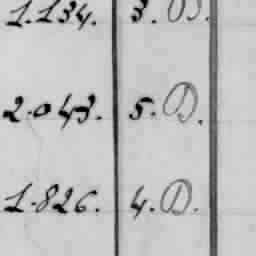 1.134. 3. D.
2.043. 5. D.
1.826. 4. D.